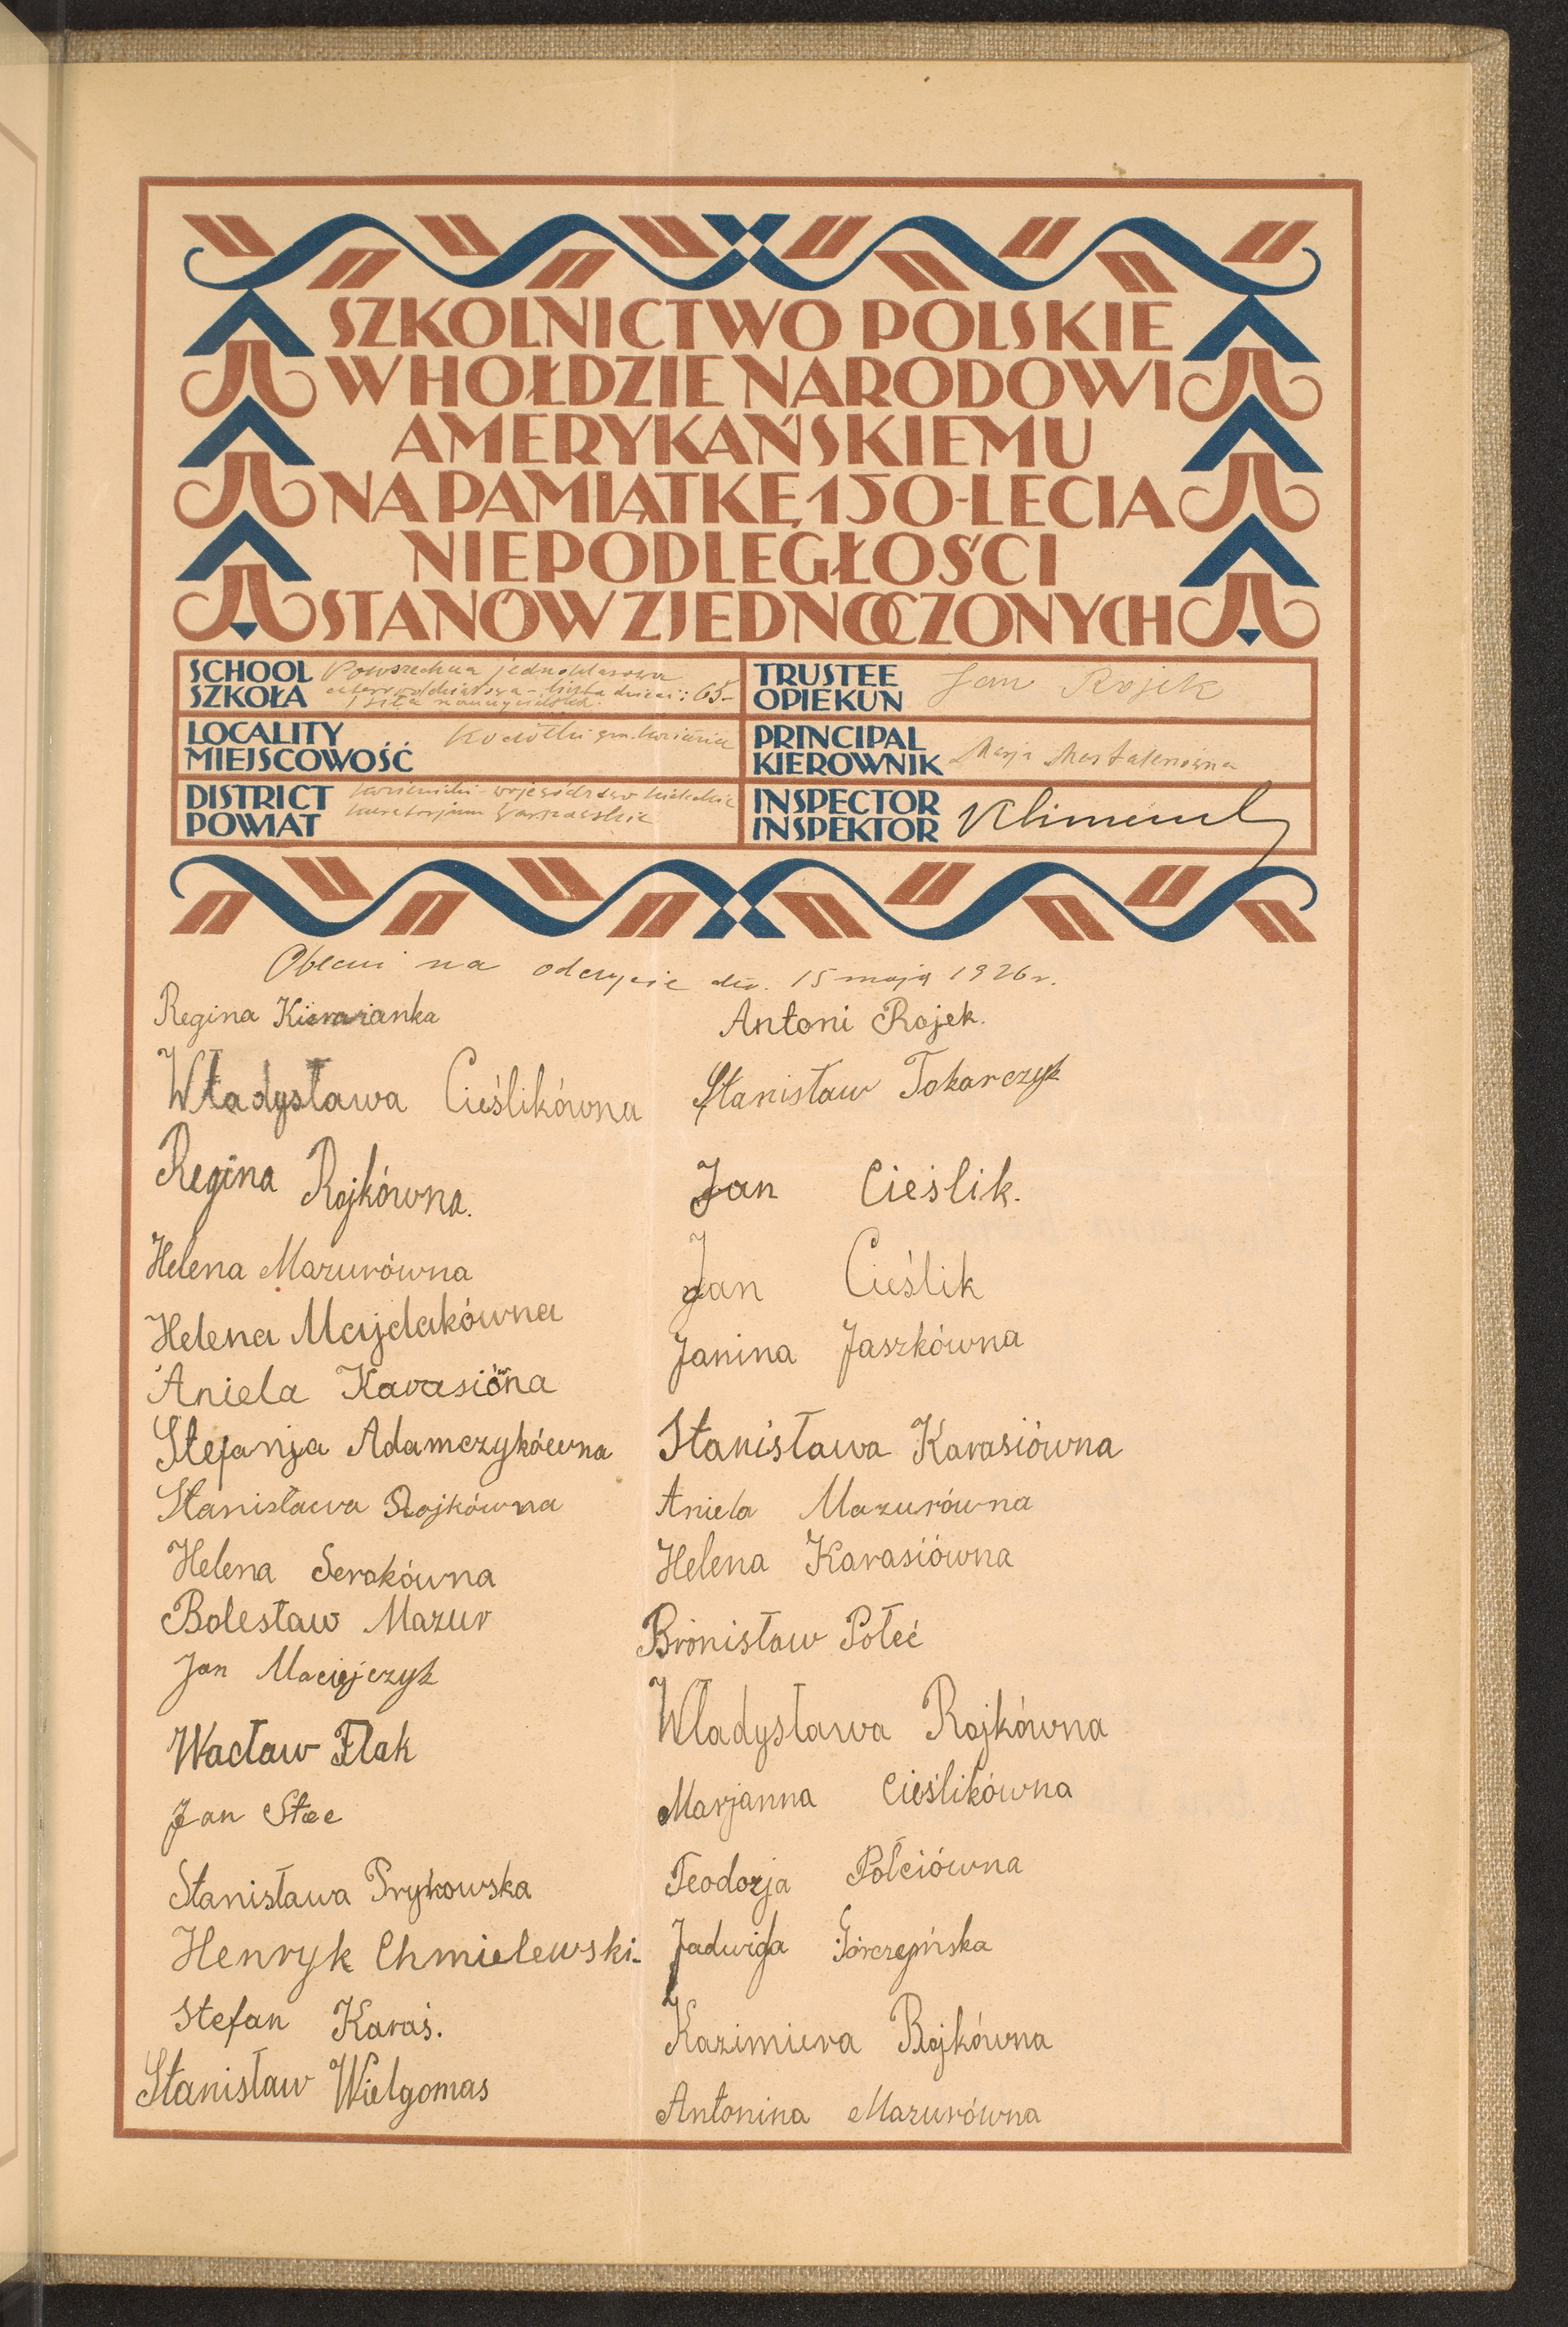 SZKOLNICTWO POLSKIE
W HOŁDZIE NARODOWI
AMERYKAŃSKIEMU
NA PAMIĄTKĘ 150-LECIA
NIEPODLEGŁOŚCI
STANÓW ZJEDNOCZONYCH
SCHOOL
SZKOŁA
Powszechna jednoklasowa
liczba dzieci: 65-
TRUSTEE
OPIEKUN
Jan Rojek
LOCALITY
MIEJSCOWOŚĆ
gm.
PRINCIPAL
KIEROWNIK
Marja
DISTRICT
POWIAT
województwo kieleckie
kuratorjum
INSPECTOR
INSPEKTOR
Obecni na odczycie dn. 15 maja 1926 r.
Regina
Władysława Cieślikówna
Regina Rojkówna.
Helena Mazurówna
Helena Majdakówna
Aniela Karasiówna
Stefanja Adamczykówna
Stanisława Rojkówna
Helena Serokówna
Bolesław Mazur
Jan Maciejczyk
Wacław Flak
Jan Stec
Stanisława Prykowska
Henryk Chmielewski.
Stefan Karaś.
Stanisław Wielgomas
Antoni Rojek.
Stanisław Tokarczyk
Jan Cieślik.
Jan Cieślik
Janina Jaszkówna
Stanisława Karasiówna
Aniela Mazurówna
Helena Karasiówna
Bronisław Połeć
Władysława Rojkówna
Marjanna Cieślikówna
Teodozja Połciówna
Jadwiga Górczyńska
Kazimiera Rojkówna
Antonina Mazurówna